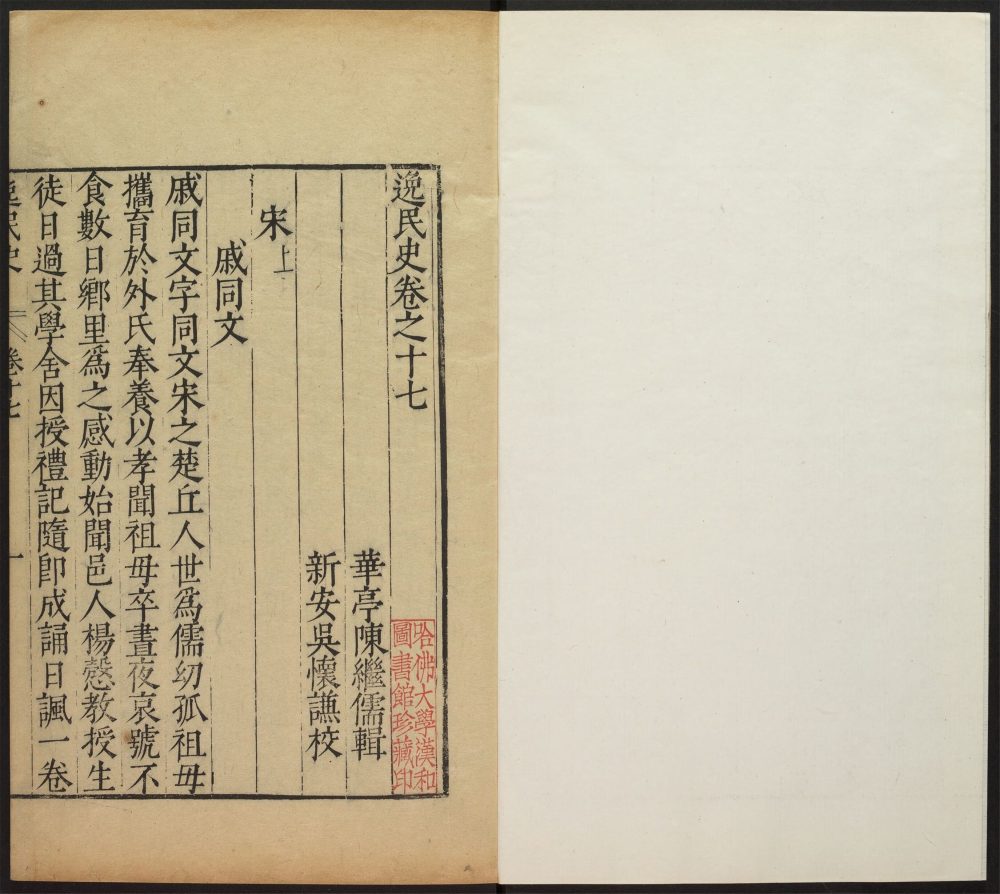 逸民史卷之十七
華亭陳繼儒輯
新安吳懷謙校
宋上
戚同文
戚同文字同文宋之楚丘人世爲儒幼孤祖母
攜育於外氏奉養以孝聞祖母卒晝夜哀號不
食數日鄉里爲之感動始聞邑人楊慤教授生
徒日過其學舍因授禮記隨卽成誦日諷一卷
逸民史
卷十七
一
哈佛大學漢和
圖書館珍藏印